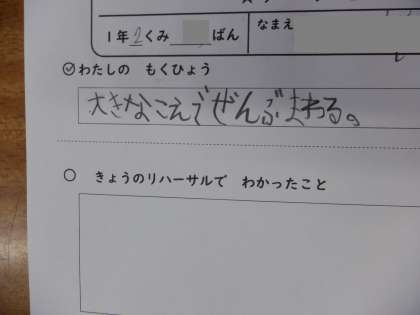 1年2くみ ばん なまえ
わたしの もくひょう
大きなこえでぜんぶまわる。
きょうのリハーサルで わかったこと